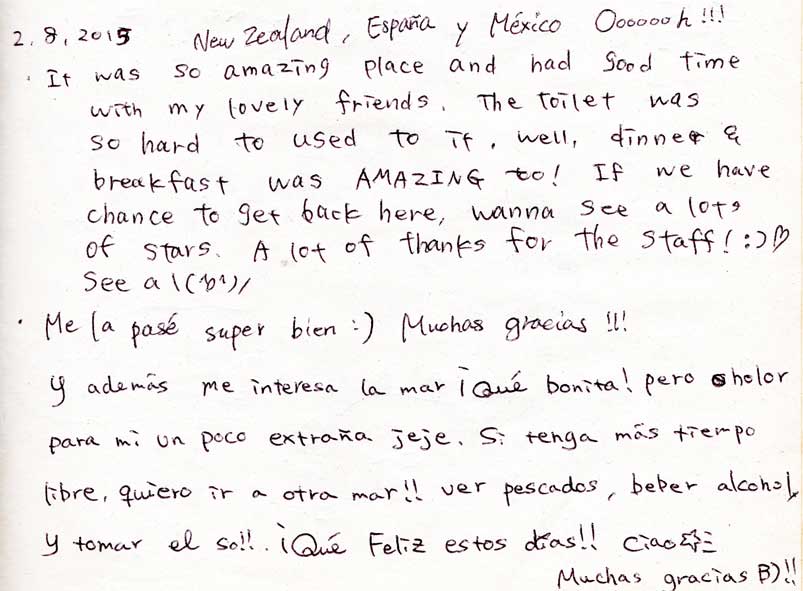 2.8.2015 New Zealand, España y México Oooooooh!!!
· It was so amazing place and had good time
with my lovely friends. The toilet was
so hard to used to it. well, dinner &
breakfast was AMAZING too! If we have
chance to get back here, wanna see a lots
of stars. A lot of thanks for the staff! :)♡
See a \(^o^)/
· Me la pasé super bien :) Muchas gracias !!!
y además me interesa la mar ¡Qué bonita! pero holor
para mi un poco extraña jeje. Si tenga más tiempo
libre, quiero ir a otra mar!! ver pescados, beber alcohol,
y tomar el sol!!. ¡Qué Feliz estos días!! Ciao☆
Muchas gracias B)!!